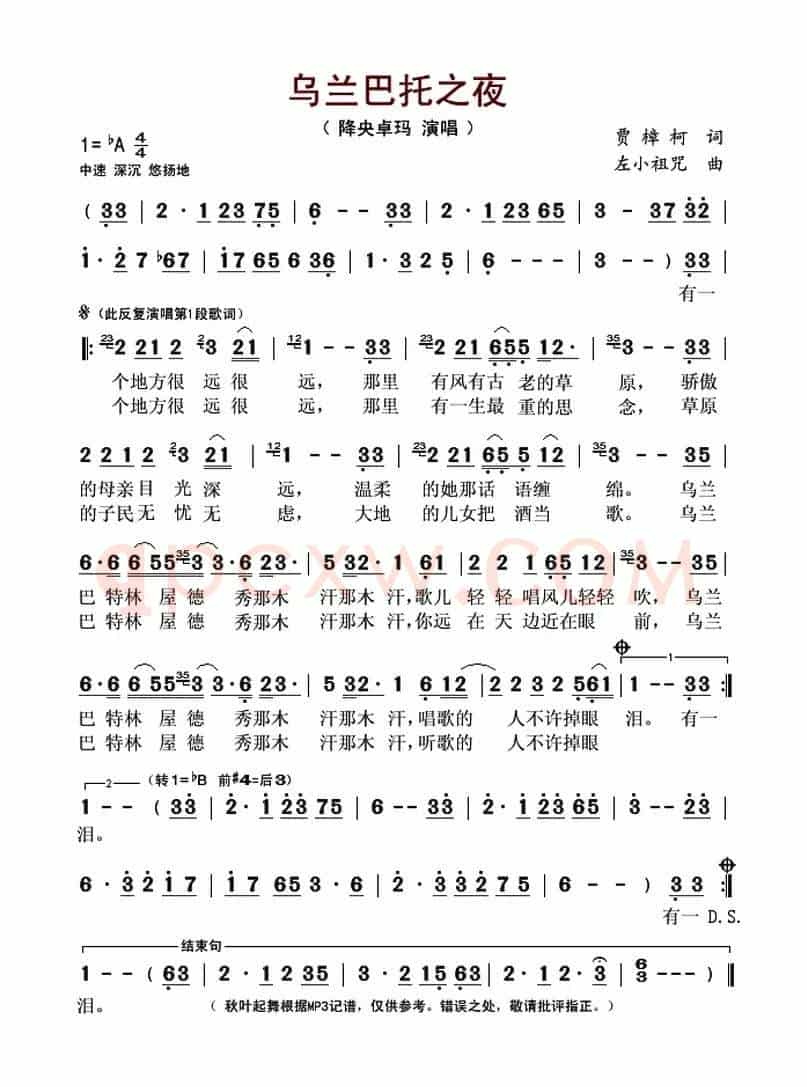 乌兰巴托之夜
（ 降央卓玛 演唱 ）
1= ♭A 4/4
贾樟柯 词
中速 深沉 悠扬地
左小祖咒 曲
( 33 | 2 · 1 23 75 | 6 - - 33 | 2 · 1 23 65 | 3 - 37 32 |
1 · 2 7 ♭67 | 17 65 6 36 | 1 · 3 2265 | 6 - - | 3 - - ) 33 |
有一
𝄋 (此反复演唱第1段歌词)
‖: 23 2 21 2 2 3 21 | 12 1 - - 33 | 23 2 21 655 512· | 35 3 - - 33 |
个地方很 远很 远， 那里 有风有古 老的草 原， 骄傲
个地方很 远很 远， 那里 有一生最 重的思 念， 草原
2 21 2 2 3 21 | 12 1 - - 33 | 23 2 21 655 5 | 35 3 - - 35 |
的母亲目 光深 远， 温柔 的她那话 语缠 绵。 乌兰
的子民无 忧无 虑， 大地 的儿女把 酒当 歌。 乌兰
6·6 6553 35 3 3·6 23· | 5 32· 1 61 | 2 2 1 65 12 | 35 3 - - 35 |
qpcxw.COM
巴 特林 屋 德 秀那木 汗那木 汗,歌儿 轻 轻 唱风儿轻轻 吹, 乌兰
巴 特林 屋 德 秀那木 汗那木 汗,你远 在 天 边近在眼 前, 乌兰
1
6·6 6553 35 3 3·6 23· | 5 32· 1 612 | 2 323 2 561 | 1 - - 33 :‖
巴 特林 屋 德 秀那木 汗那木 汗,唱歌的 人不许掉眼 泪。 有一
巴 特林 屋 德 秀那木 汗那木 汗,听歌的 人不许掉眼
2 (转1=♭B 前♯4=后3)
1 - - (33 | 2· 1 23 75 | 6 - - 33 | 2· 1 23 65 | 3 - - 23 |
泪。
6 · 3 2 1 7 | 17 65 3 · 6 | 2 · 3 27 5 | 6 - - ) 33 :‖
有一 D.S.
结束句
1 - - ( 63 | 2 · 1 23 53 | 3 · 2 15 63 | 2 · 1 2 · 3 | 6/3 - - - ) ‖
泪。 （ 秋叶起舞根据MP3记谱，仅供参考。错误之处，敬请批评指正。）